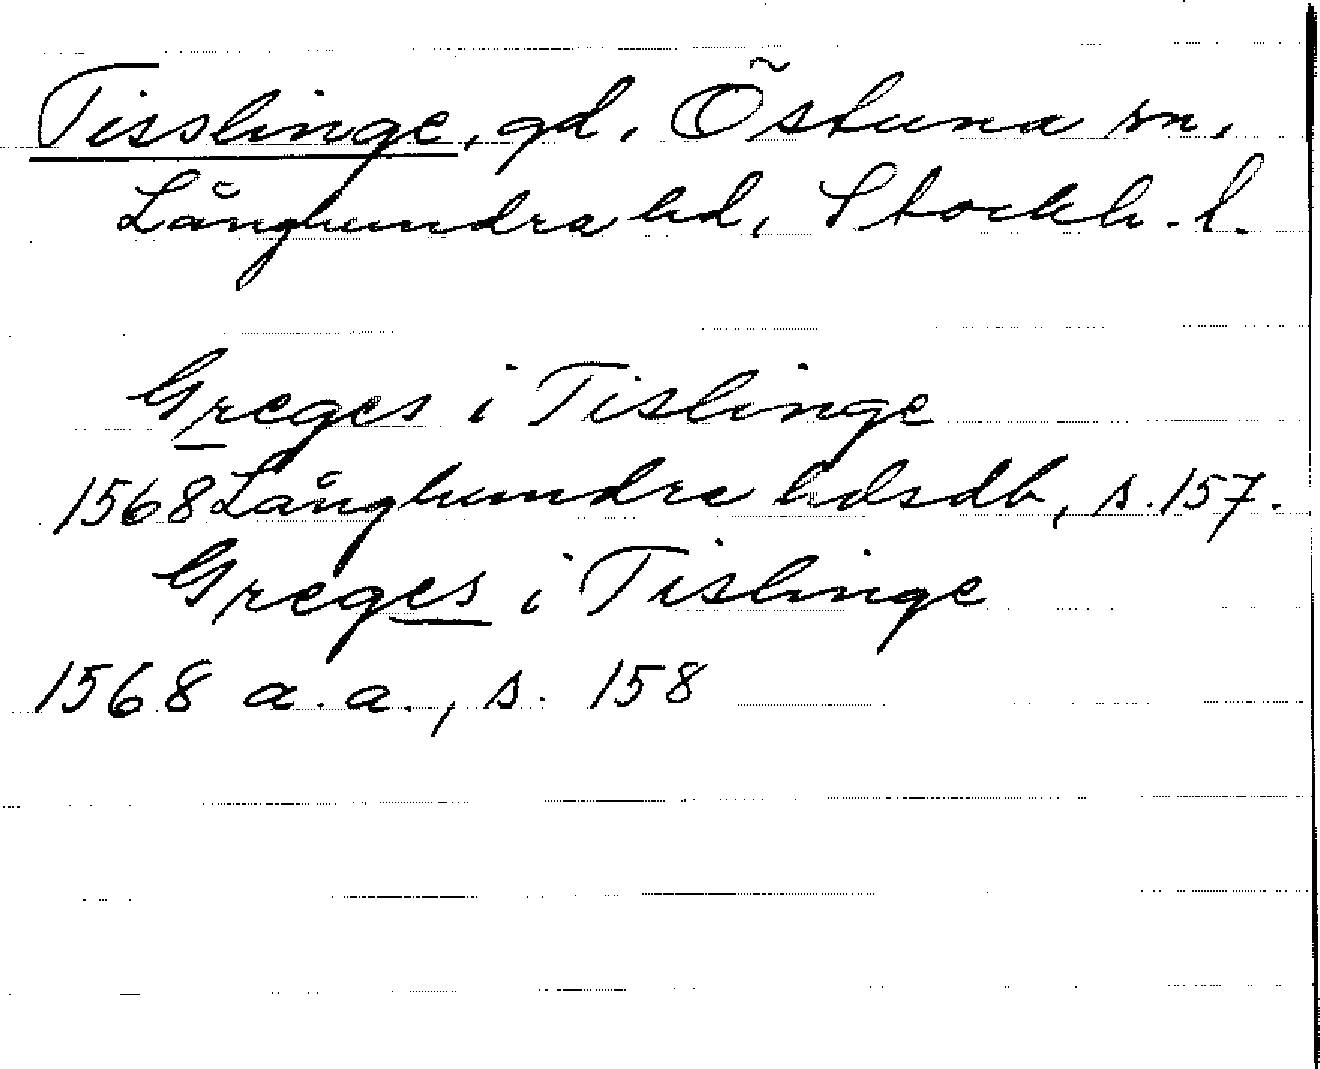 Tisslinge, gd, Östuna sn,
Långhundra hd, Stockh. l.
Greges i Tislinge
1568 Långhundra hdsdb, s. 157.
Greges i Tislinge
1568 a.a., s. 158